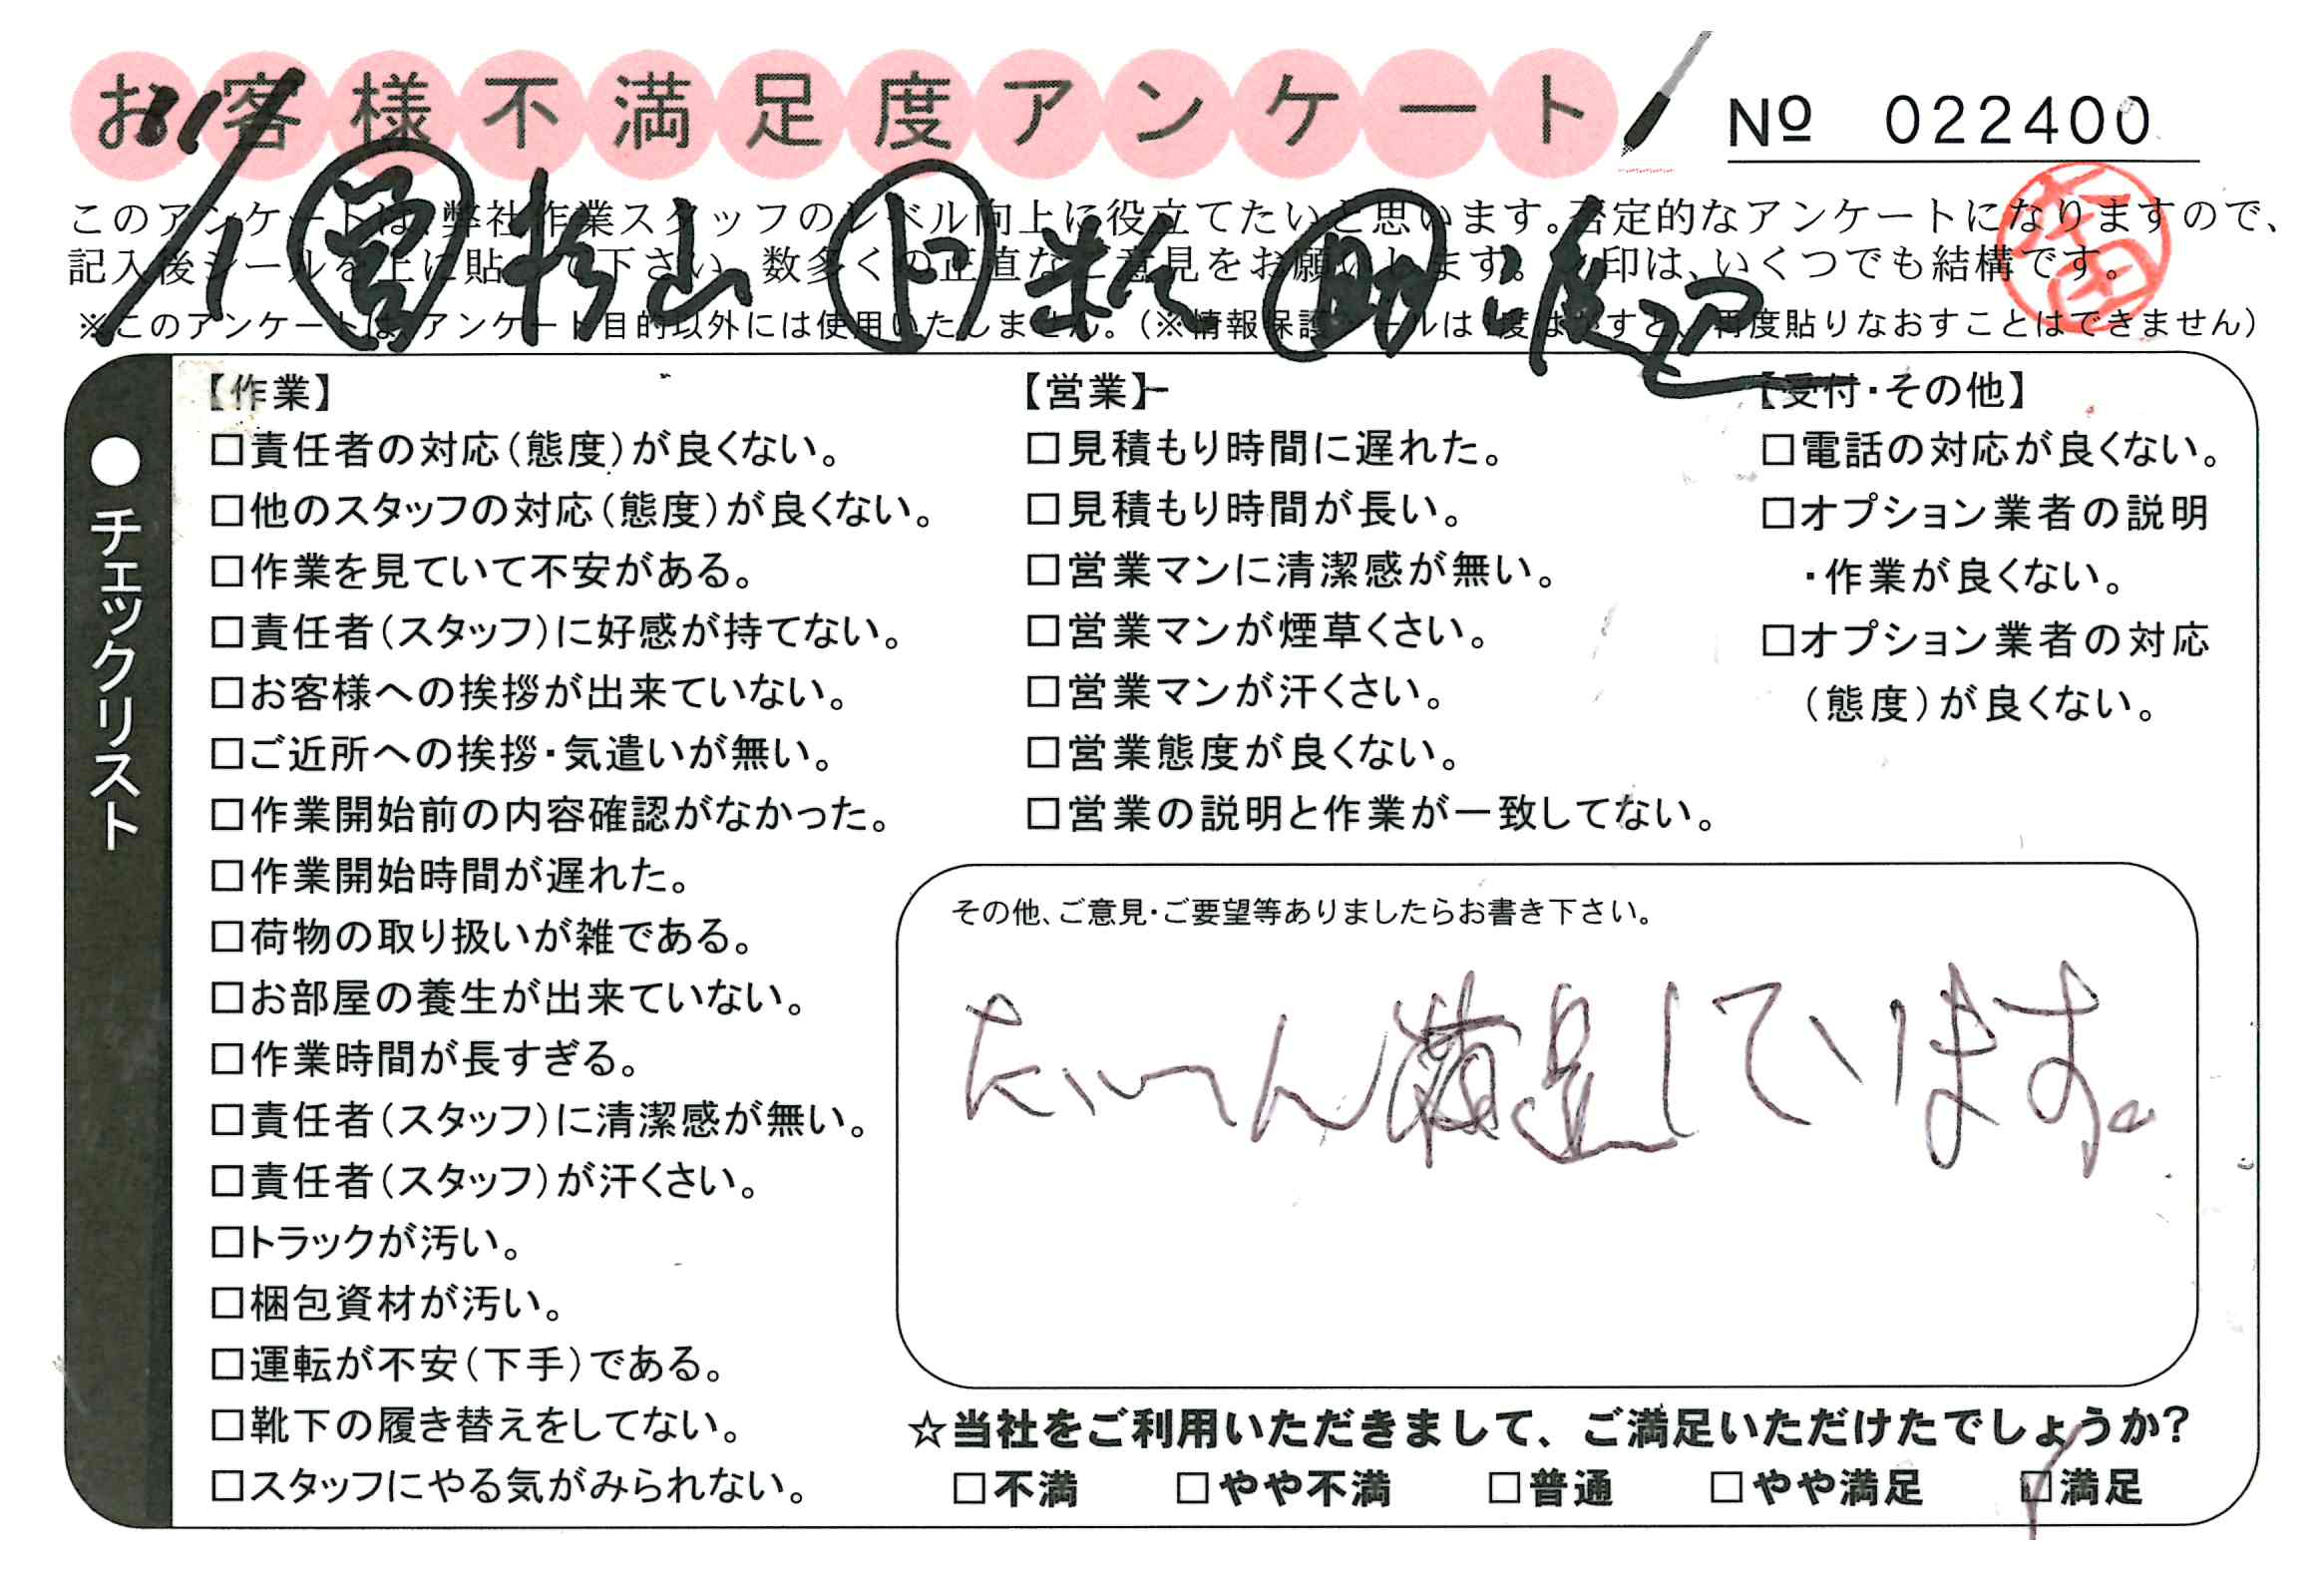 お客様不満足度アンケート
№ 022400
11/1 営 杉山 ト 助 渡辺
このアンケートは、弊社作業スタッフのレベル向上に役立てたいと思います。否定的なアンケートになりますので、
記入後シールを上に貼って下さい。数多くの正直なご意見をお願いします。 印は、いくつでも結構です。
※このアンケートは、アンケート目的以外には使用いたしません。(※情報保護シールは1度はがすと、再度貼りなおすことはできません)
●チェックリスト
【作業】
□責任者の対応(態度)が良くない。
□他のスタッフの対応(態度)が良くない。
□作業を見ていて不安がある。
□責任者(スタッフ)に好感が持てない。
□お客様への挨拶が出来ていない。
□ご近所への挨拶・気遣いが無い。
□作業開始前の内容確認がなかった。
□作業開始時間が遅れた。
□荷物の取り扱いが雑である。
□お部屋の養生が出来ていない。
□作業時間が長すぎる。
□責任者(スタッフ)に清潔感が無い。
□責任者(スタッフ)が汗くさい。
□トラックが汚い。
□梱包資材が汚い。
□運転が不安(下手)である。
□靴下の履き替えをしてない。
□スタッフにやる気がみられない。
【営業】
□見積もり時間に遅れた。
□見積もり時間が長い。
□営業マンに清潔感が無い。
□営業マンが煙草くさい。
□営業マンが汗くさい。
□営業態度が良くない。
□営業の説明と作業が一致してない。
【受付・その他】
□電話の対応が良くない。
□オプション業者の説明
・作業が良くない。
□オプション業者の対応
(態度)が良くない。
その他、ご意見・ご要望等ありましたらお書き下さい。
たいへん満足しています。
☆当社をご利用いただきまして、ご満足いただけたでしょうか?
□不満 □やや不満 □普通 □やや満足 ☑満足